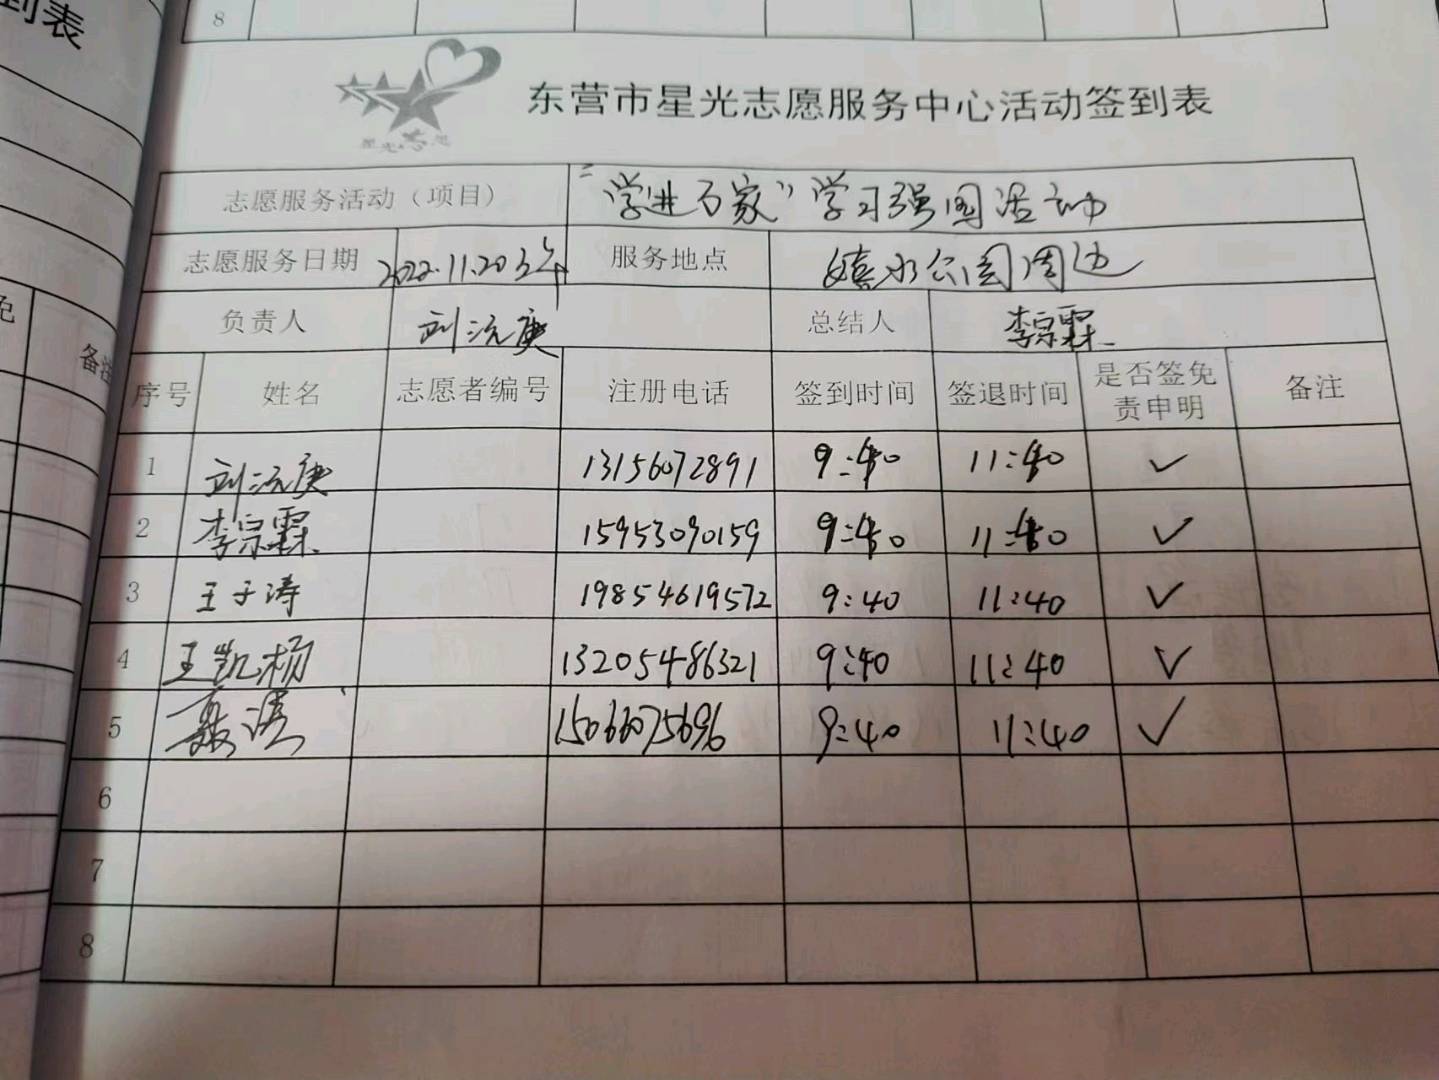 到表
8
东营市星光志愿服务中心活动签到表
志愿服务活动（项目） “学进万家”学习强国活动
志愿服务日期 2022.11.20 服务地点 嬉水公园周边
负责人 刘沅庚 总结人 李宗霖
免
备注
序号 姓名 志愿者编号 注册电话 签到时间 签退时间 是否签免责申明 备注
1 刘沅庚 13156072891 9:40 11:40 ✓
2 李宗霖 15953090159 9:40 11:40 ✓
3 王子涛 19854619572 9:40 11:40 ✓
4 王凯杨 13205486321 9:40 11:40 ✓
5 15066075696 9:40 11:40 ✓
6
7
8